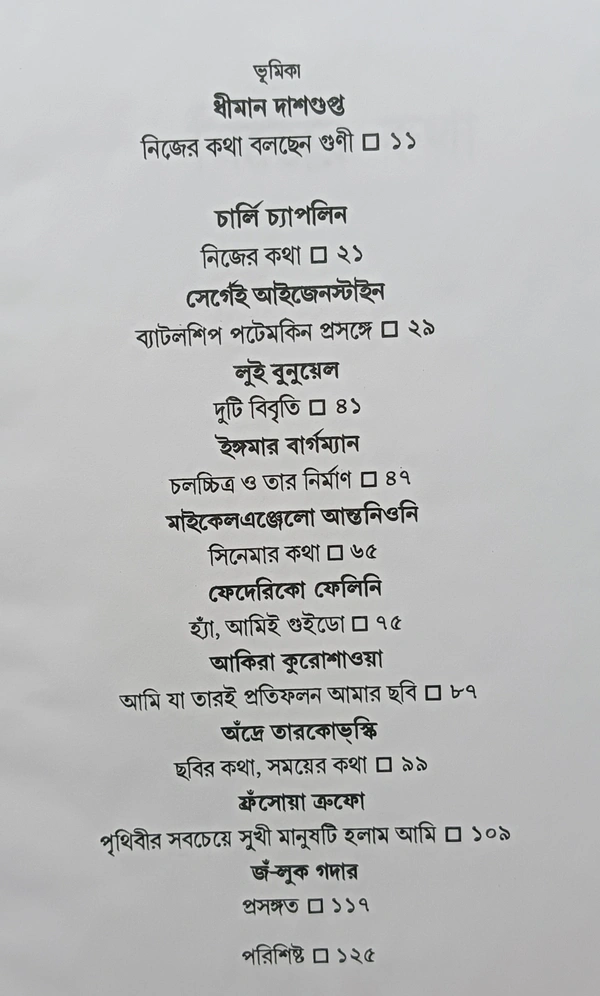 ভূমিকা
ধীমান দাশগুপ্ত
নিজের কথা বলছেন গুণী □ ১১
চার্লি চ্যাপলিন
নিজের কথা □ ২১
সের্গেই আইজেনস্টাইন
ব্যাটলশিপ পটেমকিন প্রসঙ্গে □ ২৯
লুই বুনুয়েল
দুটি বিবৃতি □ ৪১
ইঙ্গমার বার্গম্যান
চলচ্চিত্র ও তার নির্মাণ □ ৪৭
মাইকেলএঞ্জেলো আন্তনিওনি
সিনেমার কথা □ ৬৫
ফেদেরিকো ফেলিনি
হ্যাঁ, আমিই গুইডো □ ৭৫
আকিরা কুরোশাওয়া
আমি যা তারই প্রতিফলন আমার ছবি □ ৮৭
অঁদ্রে তারকোভ্‌স্কি
ছবির কথা, সময়ের কথা □ ৯৯
ফ্রঁসোয়া ত্রুফো
পৃথিবীর সবচেয়ে সুখী মানুষটি হলাম আমি □ ১০৯
জঁ-লুক গদার
প্রসঙ্গত □ ১১৭
পরিশিষ্ট □ ১২৫